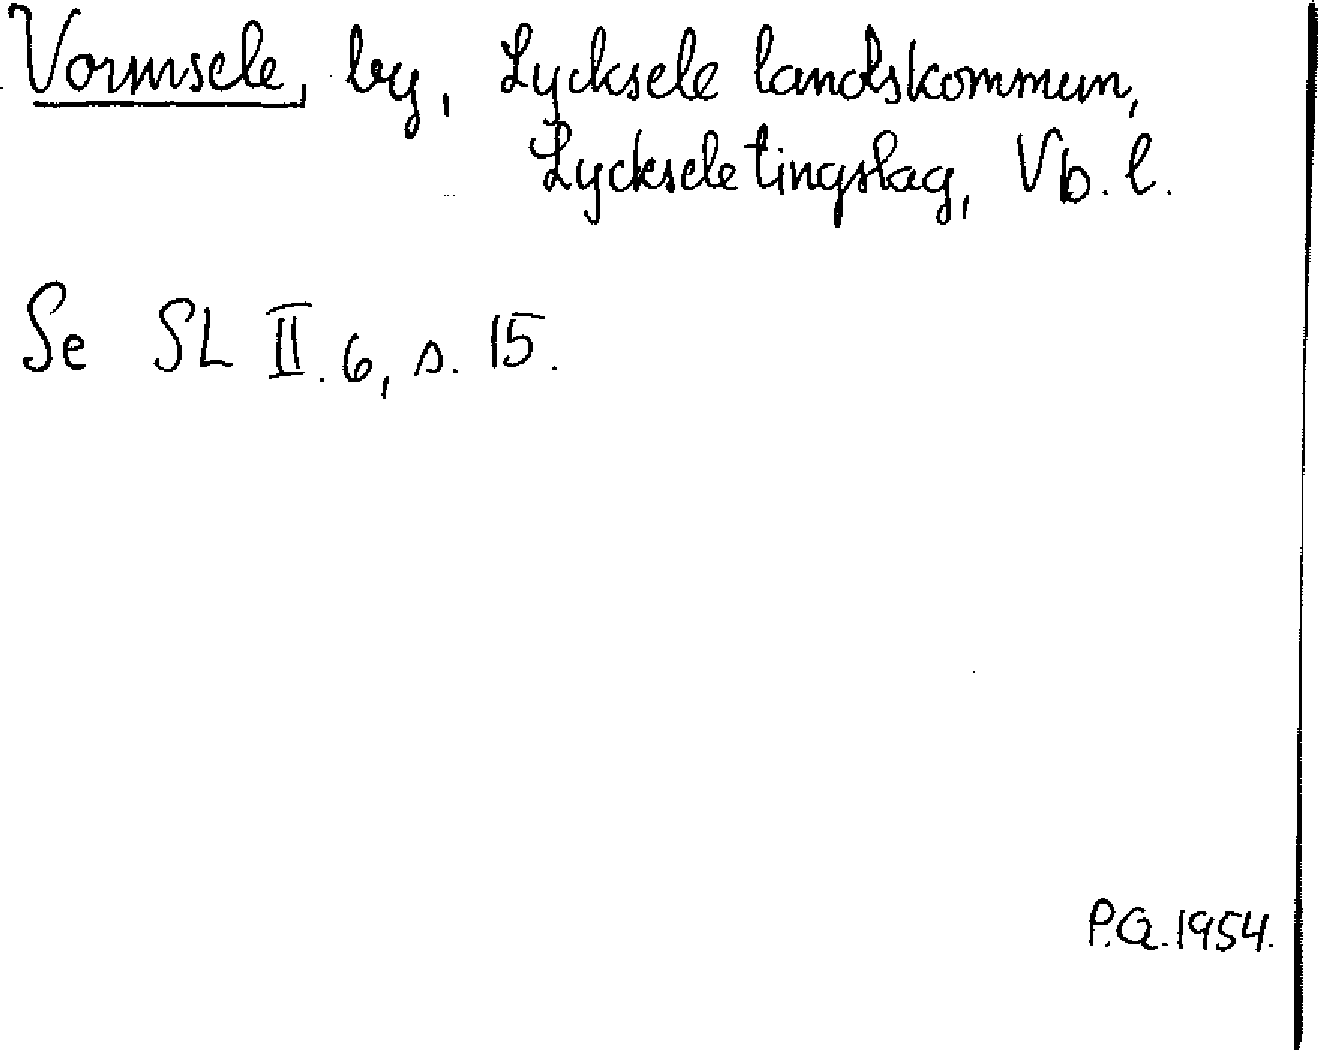 Vormsele, by, Lycksele landskommun,
Lycksele tingslag, Vb. l.
Se SL II. 6, s. 15.
P.G. 1954.